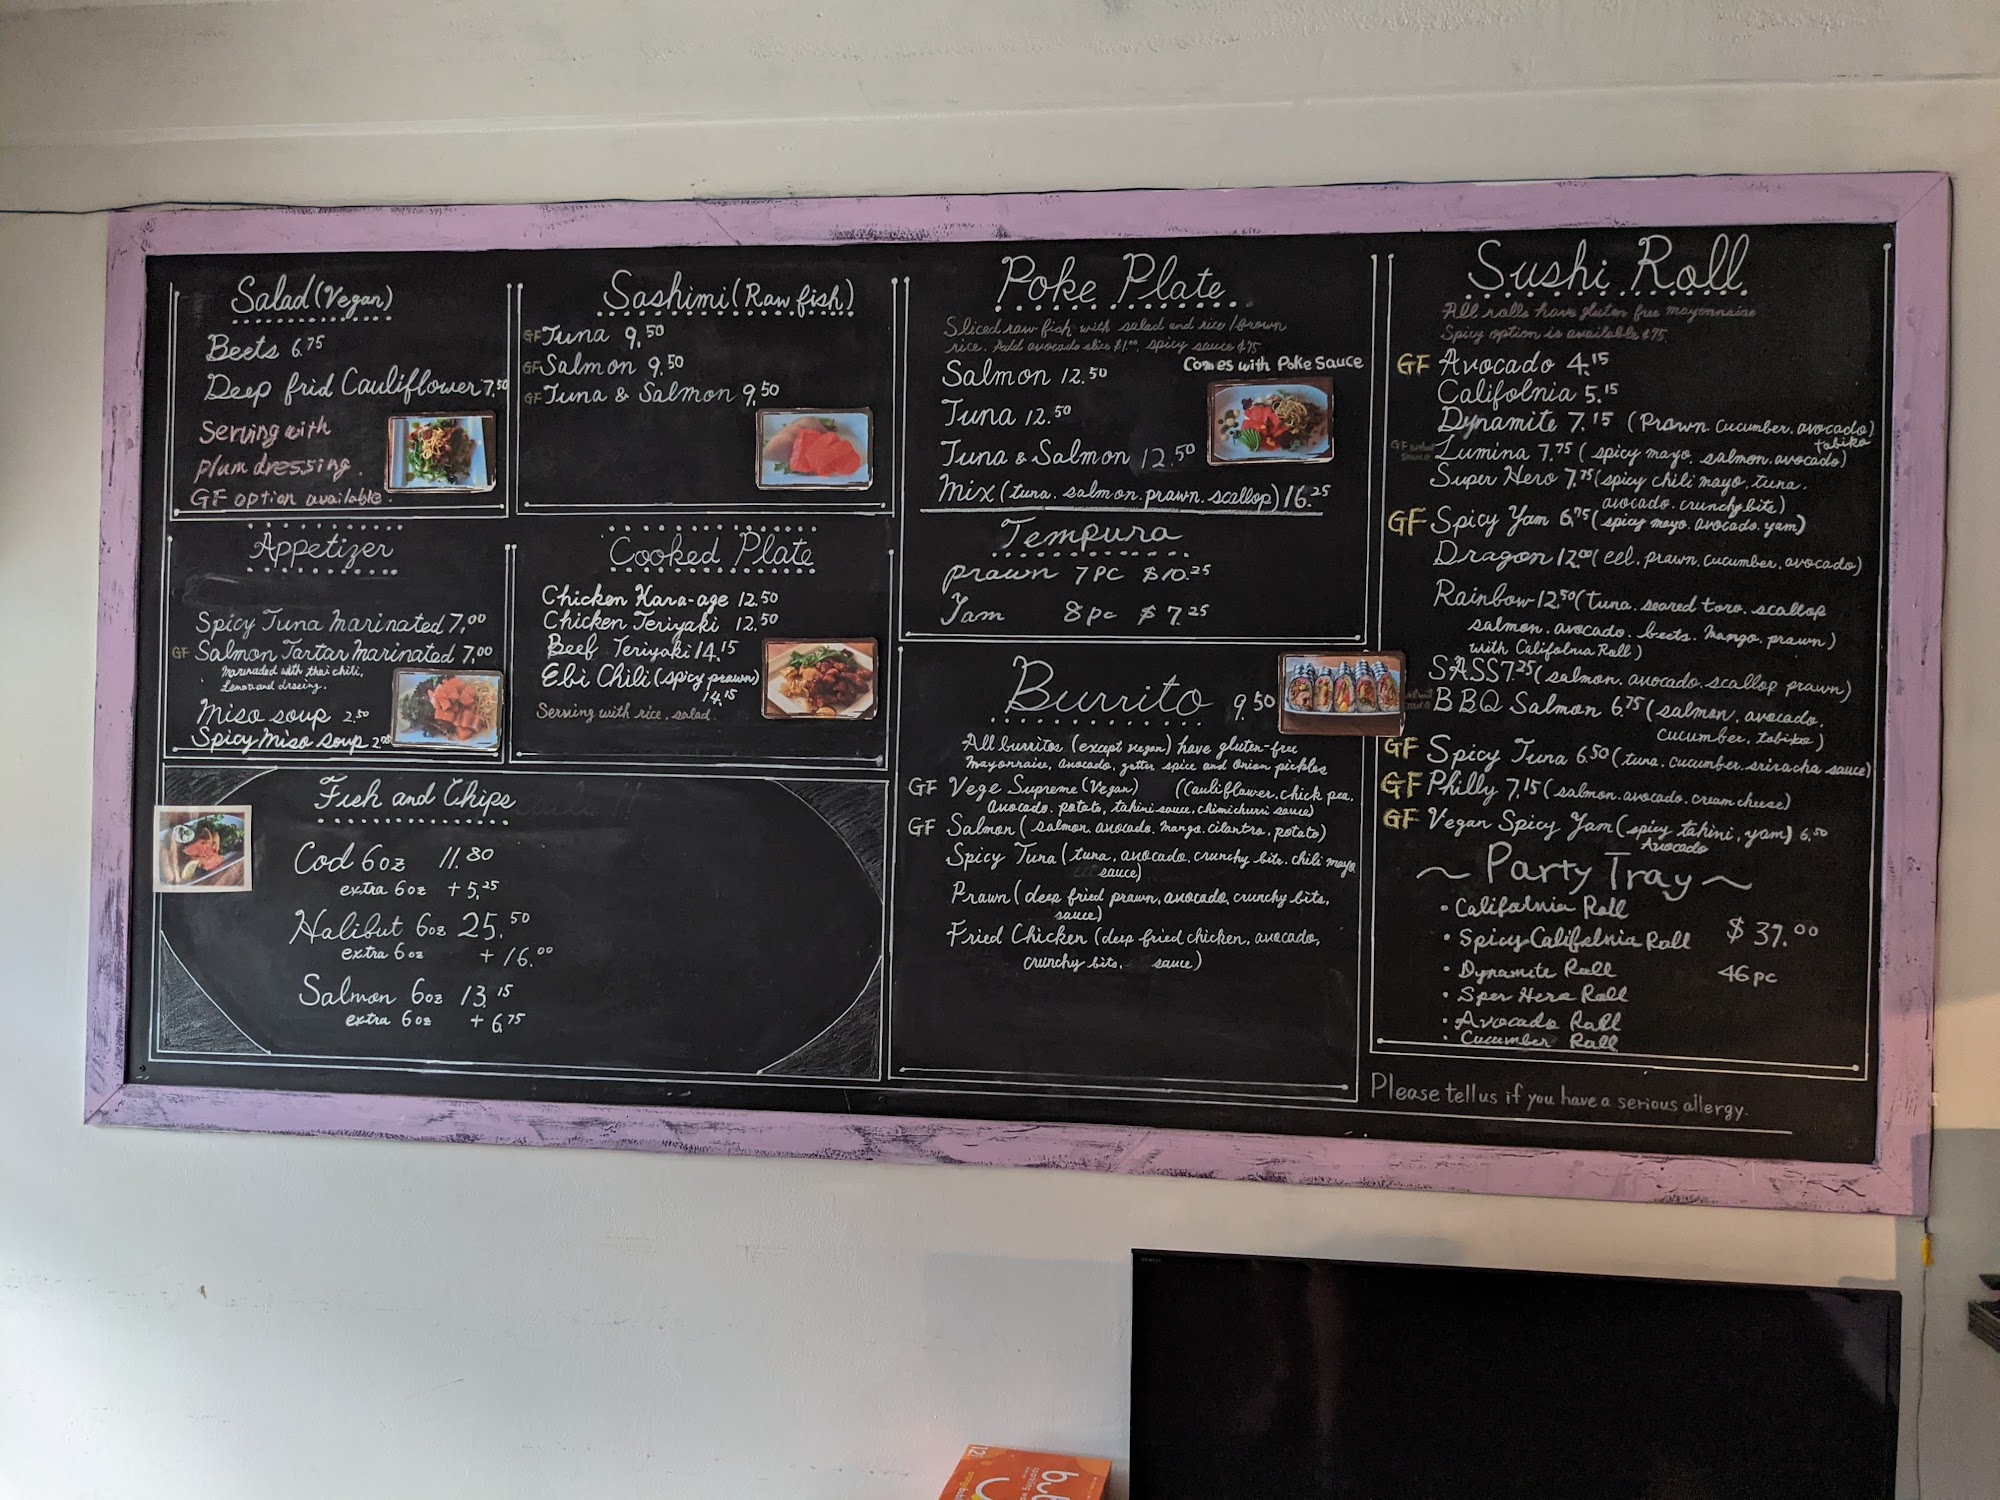 Salad (Vegan)
Beets 6.75
Deep frid Cauliflower 7.50
Serving with
plum dressing.
GF option available.
Appetizer
Spicy Tuna Marinated 7.00
GF Salmon Tartar Marinated 7.00
Marinaded with thai chili,
Lemon and
Miso soup 2.50
Spicy Miso soup
Sashimi (Raw fish)
GF Tuna 9.50
GF Salmon 9.50
GF Tuna & Salmon 9.50
Cooked Plate
Chicken Kara-age 12.50
Chicken Teriyaki 12.50
Beef Teriyaki 14.15
Ebi Chili (spicy prawn)
14.15
Serving with rice. salad.
Fish and Chips
Cod 6oz 11.80
extra 6oz + 5.25
Halibut 6oz 25.50
extra 6oz + 16.00
Salmon 6oz 13.15
extra 6oz + 6.75
Poke Plate
Sliced raw fish with salad and rice / brown
rice. Add avocado slice $1.00, spicy sauce $.75
Comes with Poke Sauce
Salmon 12.50
Tuna 12.50
Tuna & Salmon 12.50
Mix (tuna. salmon. prawn. scallop) 16.25
Tempura
prawn 7 PC $10.25
Yam 8 pc $7.25
Burrito 9.50
All burritos (except vegan) have gluten-free
Mayonnaise, avocado, spice and onion pickles
GF Vege Supreme (Vegan) (Cauliflower. chick pea.
avocado. potato, tahini sauce, chimichurri sauce)
GF Salmon (salmon. avocado. mango. cilantro. potato)
Spicy Tuna (tuna, avocado, crunchy bite. chili mayo
sauce)
Prawn (deep fried prawn, avocado, crunchy bits,
sauce)
Fried Chicken (deep fried chicken, avocado,
crunchy bits, sauce)
Sushi Roll
All rolls have gluten free mayonnaise
Spicy option is available $.75.
GF Avocado 4.15
Califolnia 5.15
Dynamite 7.15 (Prawn. cucumber. avocado)
tobiko
Lumina 7.75 (spicy mayo. salmon. avocado)
Super Hero 7.75 (spicy chili mayo. tuna.
avocado. crunchy bite)
GF Spicy Yam 6.75 (spicy mayo. avocado. yam)
Dragon 12.00 (eel. prawn. cucumber. avocado)
Rainbow 12.50 (tuna. seared toro. scallop
salmon. avocado. beets. mango. prawn)
with Califolnia Roll)
SASS 7.25 (salmon. avocado. scallop prawn)
BBQ Salmon 6.75 (salmon, avocado.
cucumber, tobiko)
GF Spicy Tuna 6.50 (tuna. cucumber. sriracha sauce)
GF Philly 7.15 (salmon. avocado. cream cheese)
GF Vegan Spicy Yam (spicy tahini, yam) 6.50
Avocado
~ Party Tray ~
• Califolnia Roll
• Spicy Califolnia Roll $37.00
• Dynamite Roll 46 pc
• Sper Hero Roll
• Avocado Roll
• Cucumber Roll
Please tell us if you have a serious allergy.